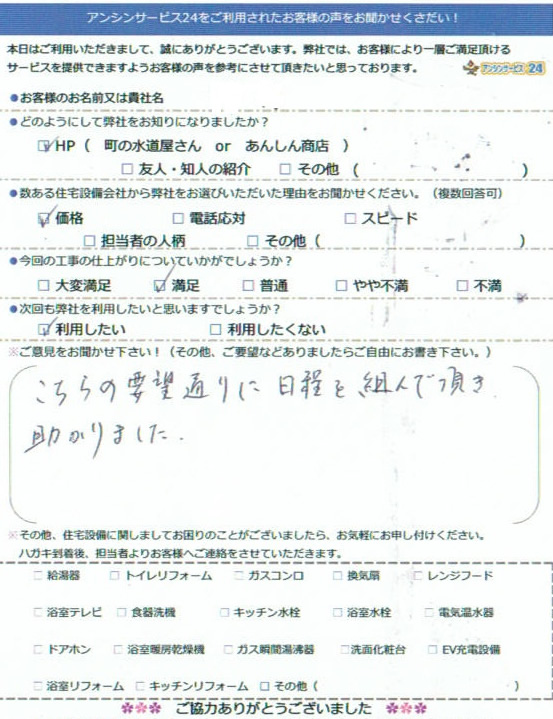 アンシンサービス24をご利用されたお客様の声をお聞かせください！
本日はご利用いただきまして、誠にありがとうございます。弊社では、お客様により一層ご満足頂ける
サービスを提供できますようお客様の声を参考にさせて頂きたいと思っております。 アンシンサービス24
●お客様のお名前又は貴社名
●どのようにして弊社をお知りになりましたか？
☑HP（ 町の水道屋さん or あんしん商店 ）
□友人・知人の紹介 □その他（ ）
●数ある住宅設備会社から弊社をお選びいただいた理由をお聞かせください。（複数回答可）
☑価格 □電話応対 □スピード
□担当者の人柄 □その他（ ）
●今回の工事の仕上がりについていかがでしょうか？
□大変満足 ☑満足 □普通 □やや不満 □不満
●次回も弊社を利用したいと思いますでしょうか？
☑利用したい □利用したくない
※ご意見をお聞かせ下さい！（その他、ご要望などありましたらご自由にお書き下さい。）
こちらの要望通りに日程を組んで頂き
助かりました.
※その他、住宅設備に関しましてお困りのことがございましたら、お気軽にお申し付けください。
ハガキ到着後、担当者よりお客様へご連絡をさせていただきます。
□給湯器 □トイレリフォーム □ガスコンロ □換気扇 □レンジフード
□浴室テレビ □食器洗機 □キッチン水栓 □浴室水栓 □電気温水器
□ドアホン □浴室暖房乾燥機 □ガス瞬間湯沸器 □洗面化粧台 □EV充電設備
□浴室リフォーム □キッチンリフォーム □その他（ ）
ご協力ありがとうございました